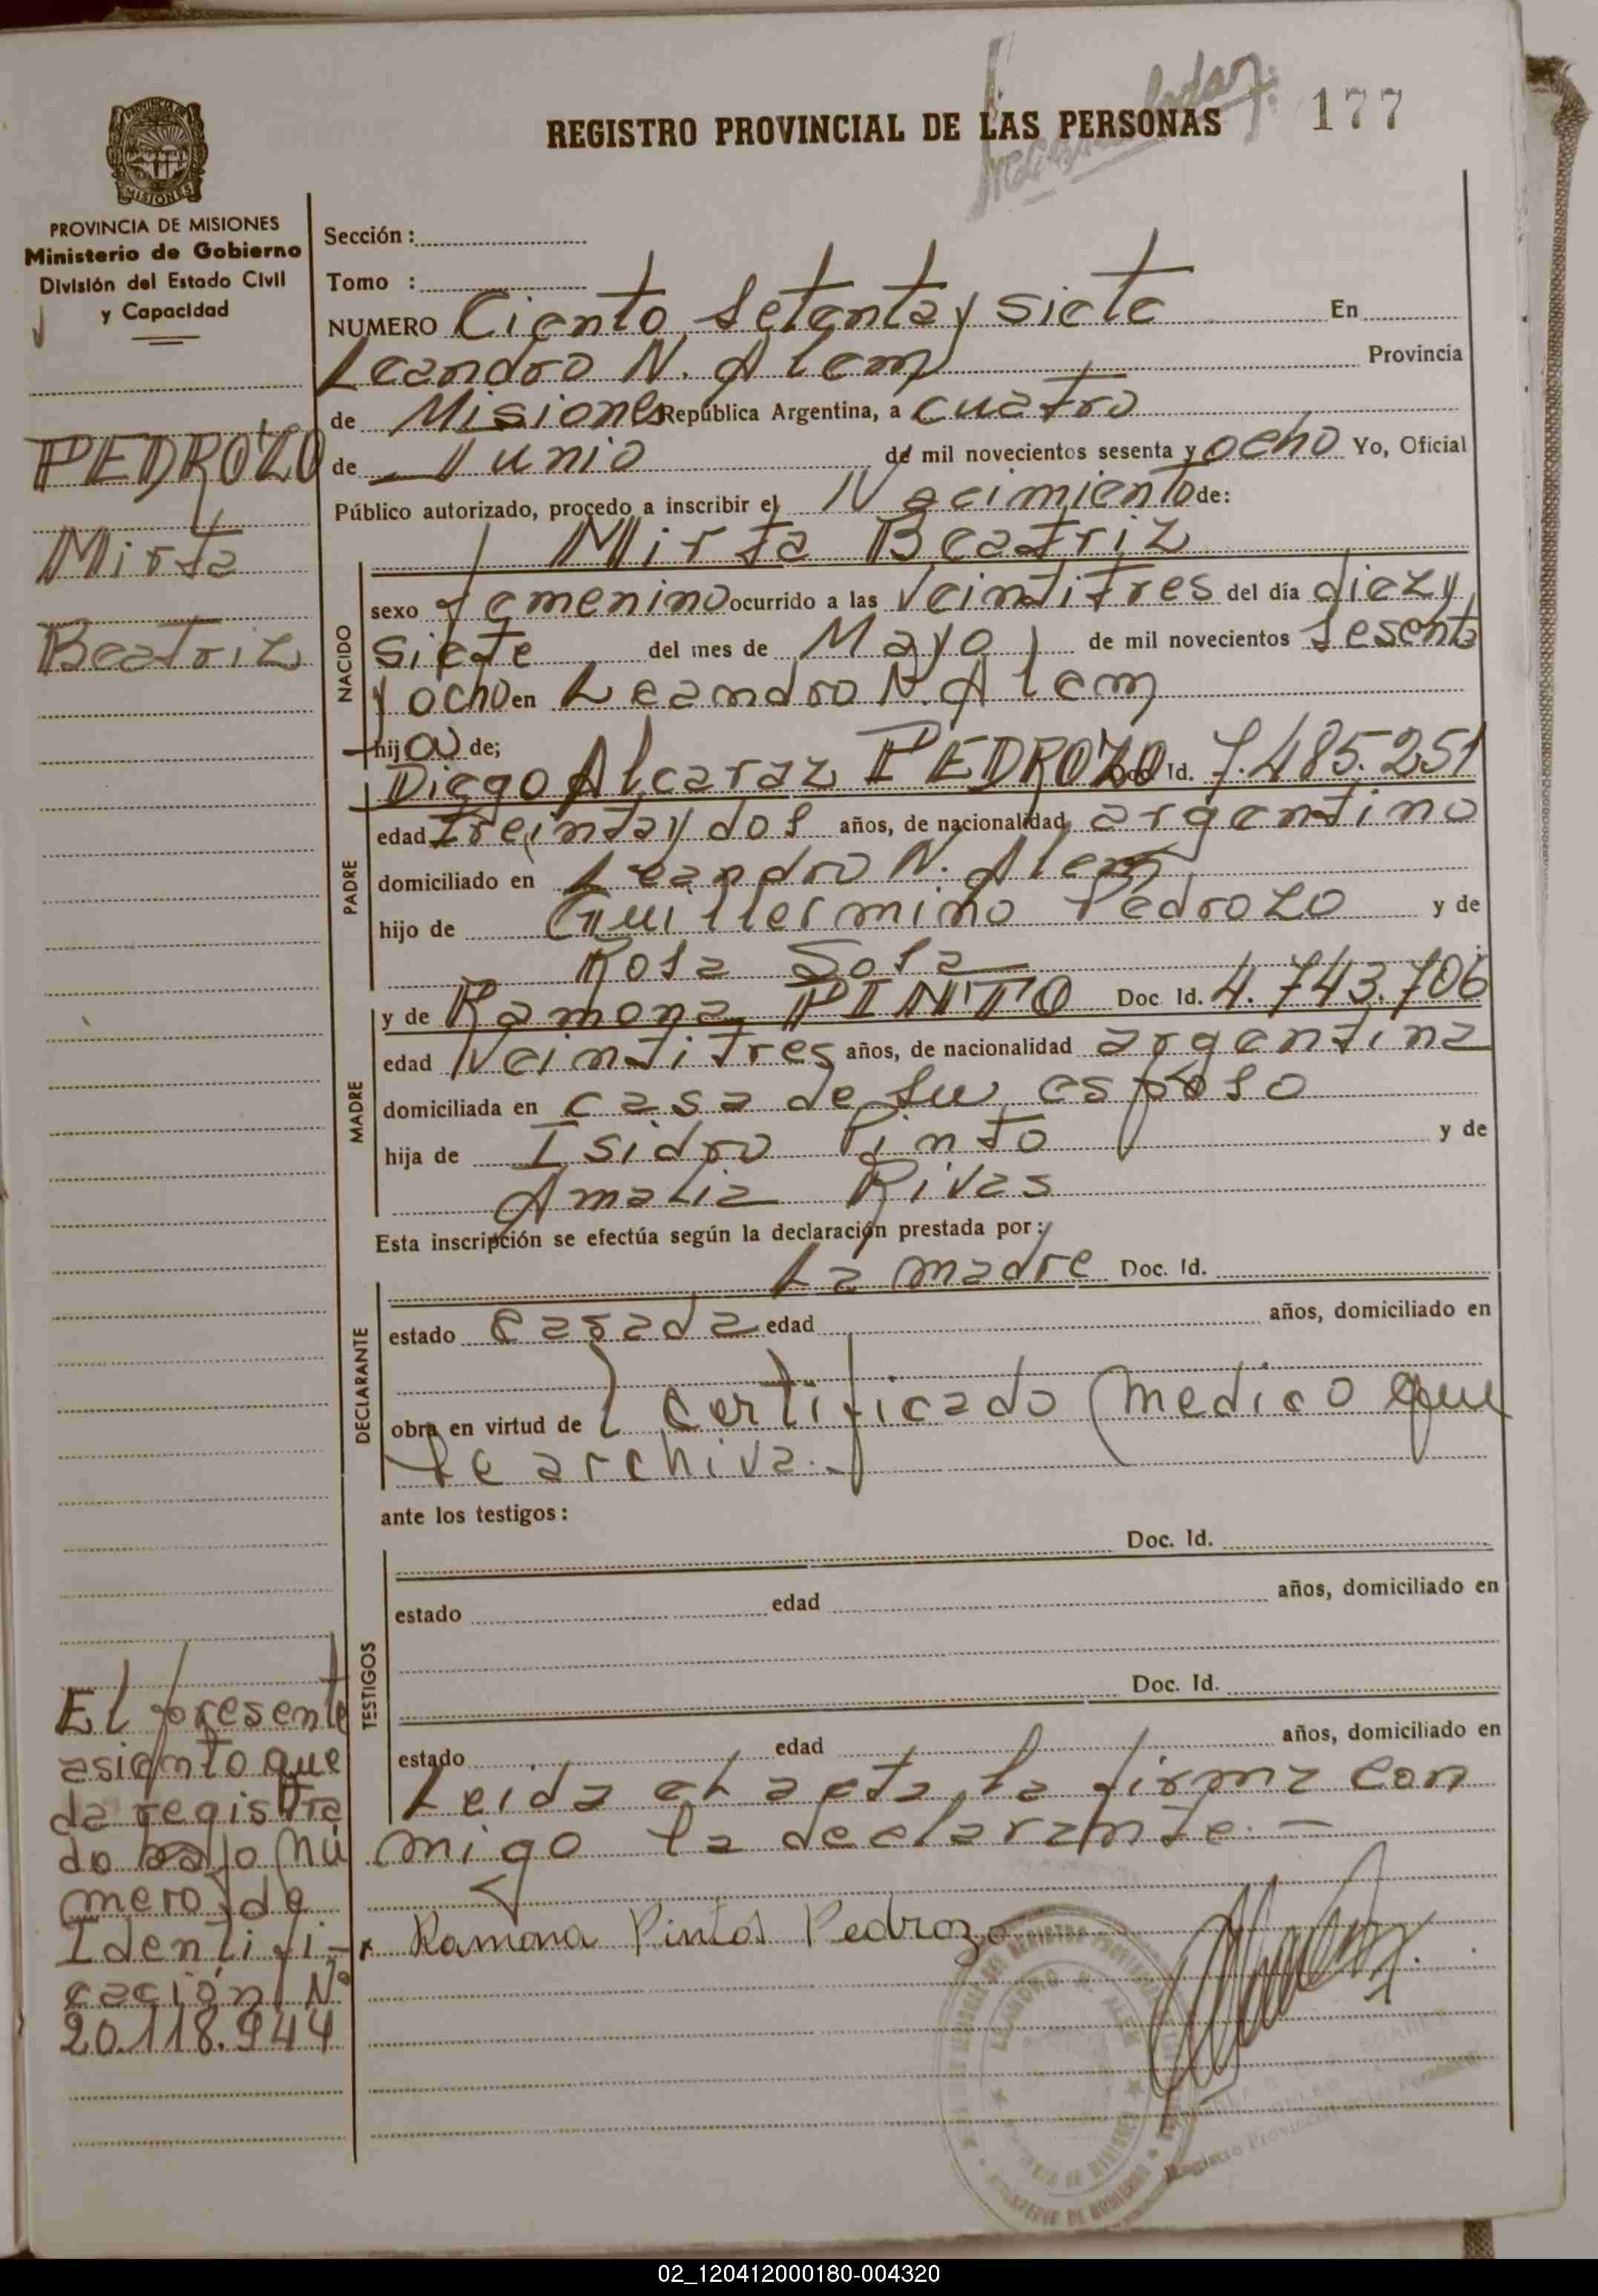 REGISTRO PROVINCIAL DE LAS PERSONAS
177
PROVINCIA DE MISIONES
Ministerio de Gobierno
División del Estado Civil
y Capacidad
PEDROZO
Mirta
Beatriz
Sección :
Tomo :
NUMERO Ciento Setenta y siete En
Leandro N. Alem Provincia
de Misiones República Argentina, a cuatro
de Junio de mil novecientos sesenta y ocho Yo, Oficial
Público autorizado, procedo a inscribir el Nacimiento de:
Mirta Beatriz
NACIDO
sexo femenino ocurrido a las Veintitres del día diez y
siete del mes de Mayo de mil novecientos sesenta
y ocho en Leandro N. Alem
hija de;
Diego Alcaraz PEDROZO Doc Id. 7.485.251
PADRE
edad treinta y dos años, de nacionalidad argentino
domiciliado en Leandro N. Alem
hijo de Guillermino Pedrozo y de
Rosa Sosa
y de Ramona PINTO Doc Id. 4.743.706
MADRE
edad Veintitres años, de nacionalidad argentina
domiciliada en casa de su esposo
hija de Isidro Pinto y de
Amalia Rivas
Esta inscripción se efectúa según la declaración prestada por:
La madre Doc. Id.
DECLARANTE
estado casada edad años, domiciliado en
obra en virtud de certificado medico que
se archiva.-
ante los testigos:
Doc. Id.
TESTIGOS
estado edad años, domiciliado en
Doc. Id.
estado edad años, domiciliado en
Leida el acta, la firma con
migo la declarante.-
x Ramona Pintos Pedrozo
El presente
asiento que
da registra
do bajo nú
mero de
Identifi-
cación Nº
20.118.944
LEANDRO N. ALEM
02_120412000180-004320